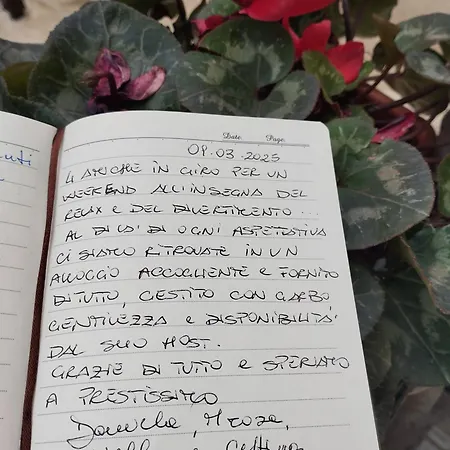 Date Page
09.03.2025
4 AMICHE IN GIRO PER UN
WEEKEND ALL'INSEGNA DEL
RELAX E DEL DIVERTIMENTO ...
AL DI LA' DI OGNI ASPETTATIVA
CI SIAMO RITROVATE IN UN
ALLOGGIO ACCOGLIENTE E FORNITO
DI TUTTO, GESTITO CON GARBO
GENTILEZZA E DISPONIBILITA'
DAL SUO HOST.
GRAZIE DI TUTTO E SPERIAMO
A PRESTISSIMO
Daniela,